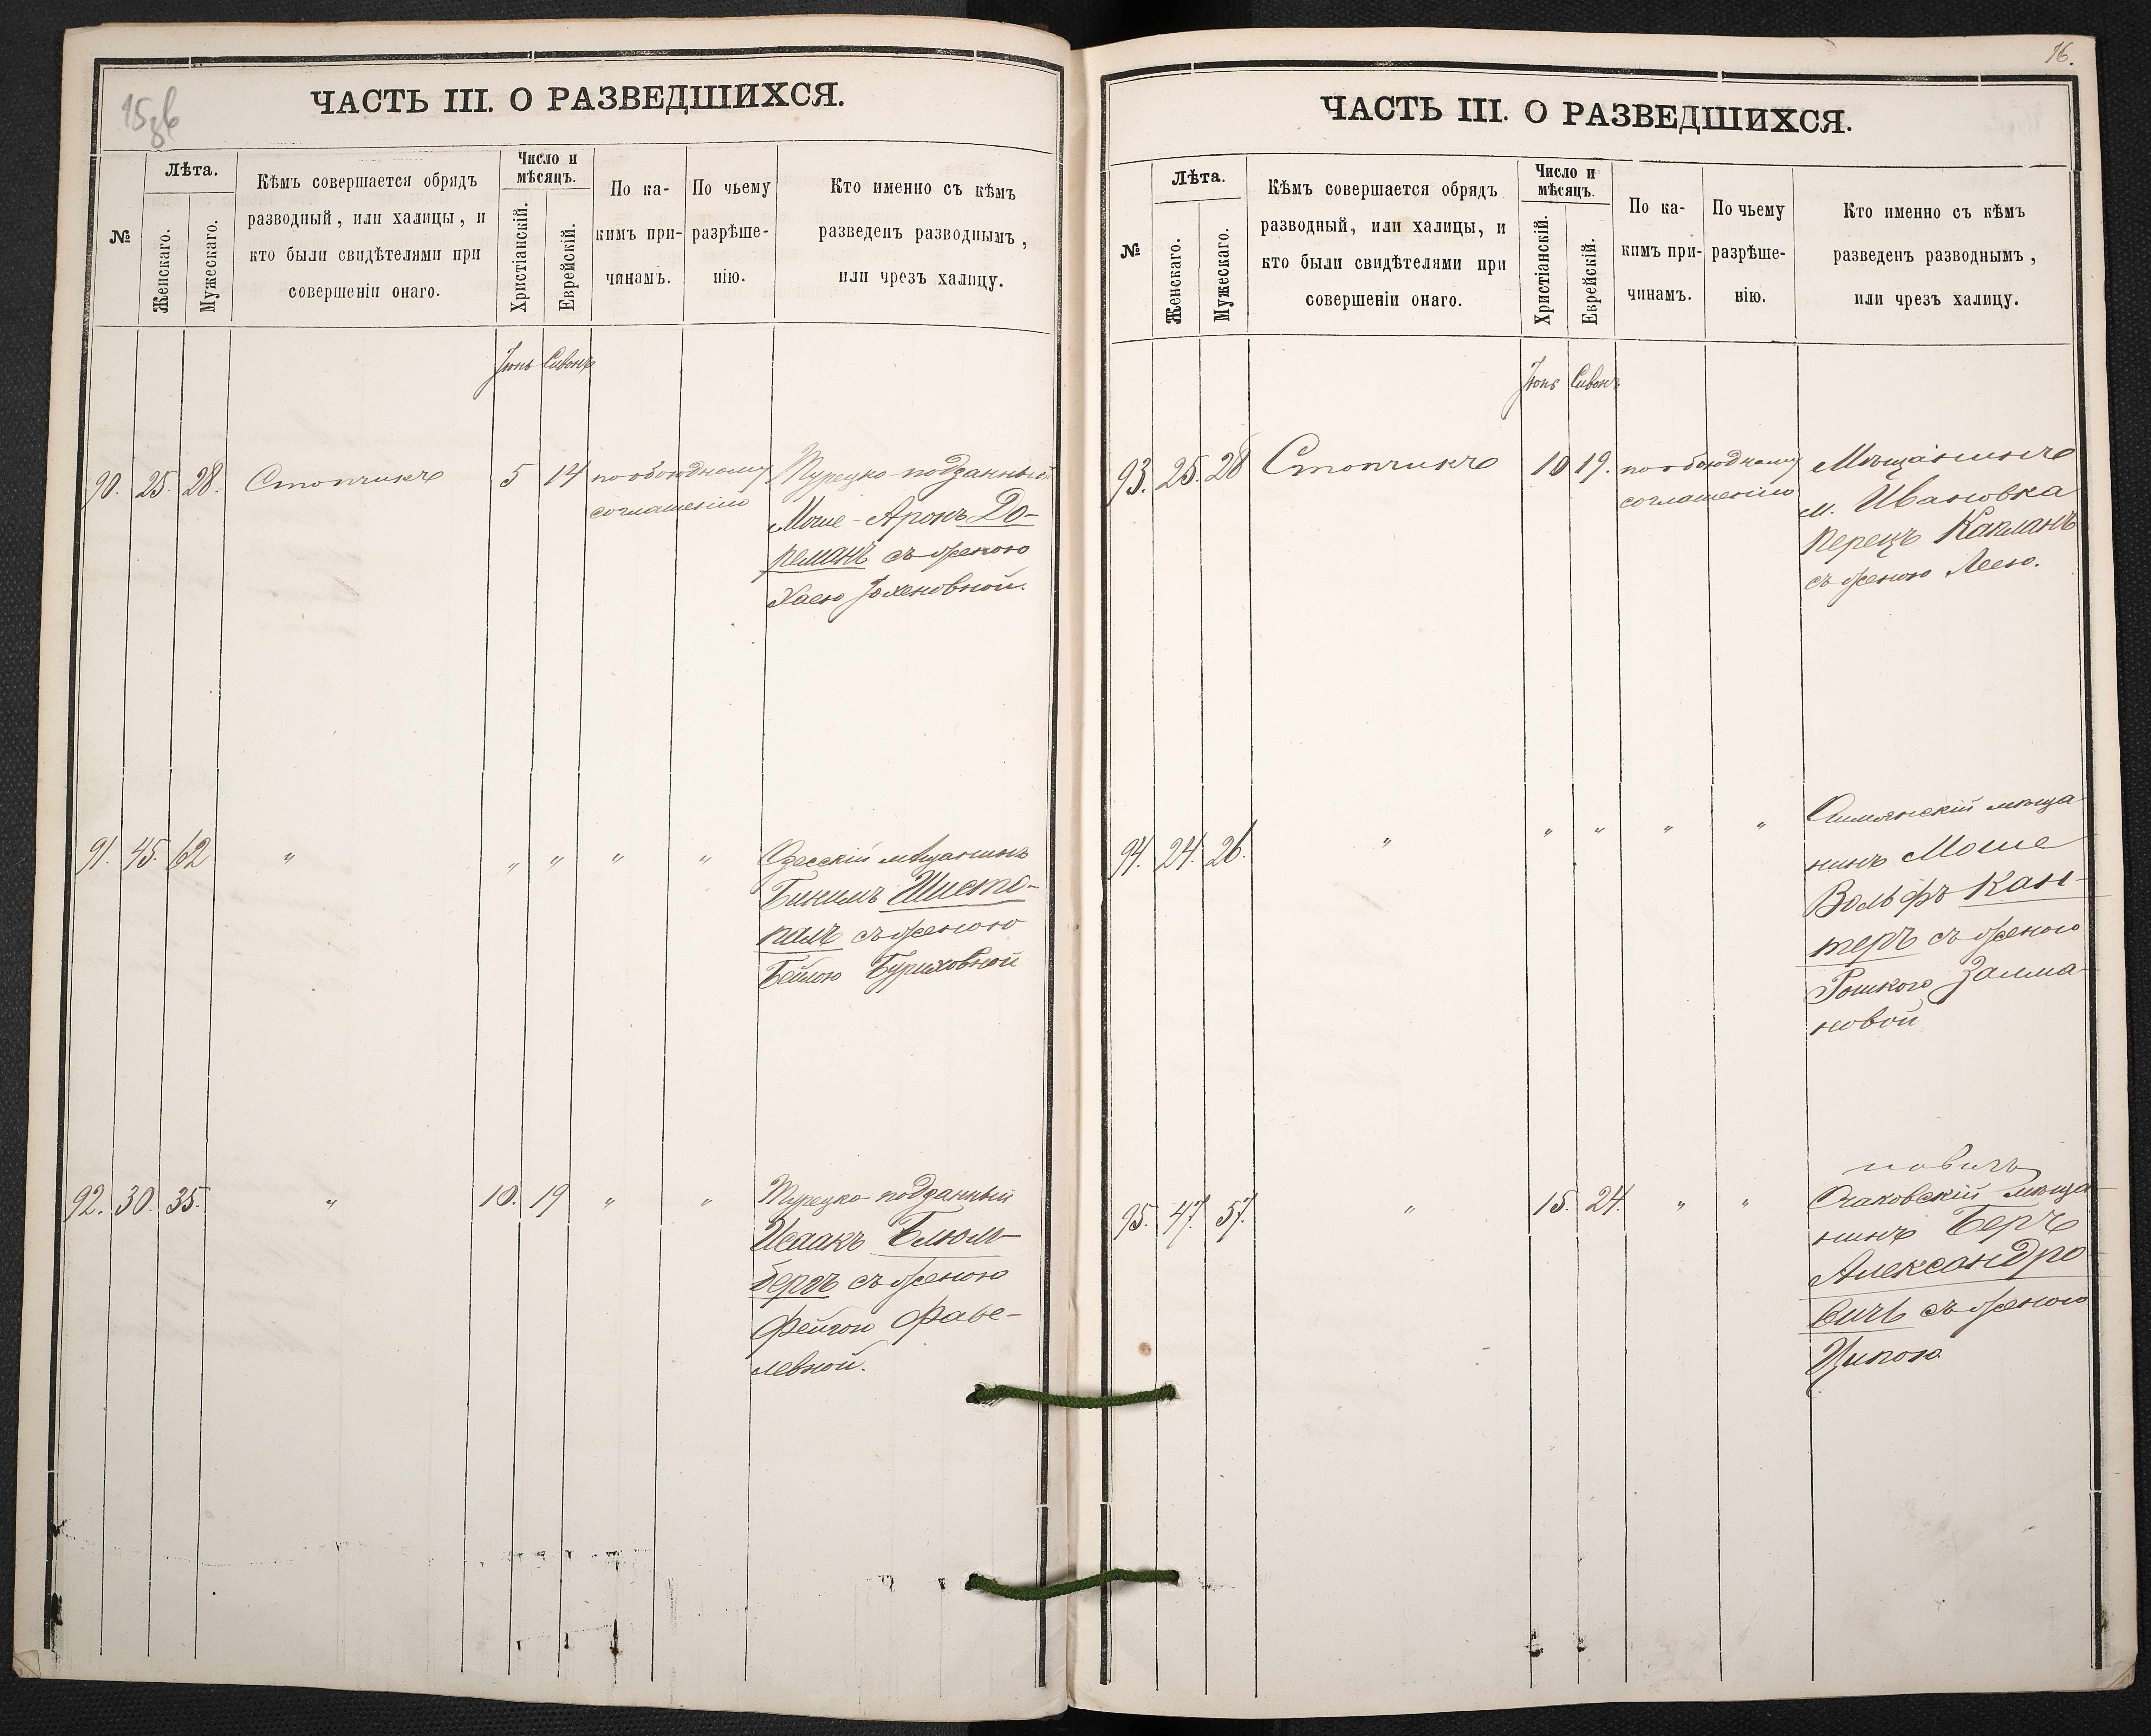 15зв
ЧАСТЬ III. О РАЗВЕДШИХСЯ.
№
Лѣта.
Женскаго.
Мужескаго.
Кѣмъ совершается обрядъ
разводный, или халицы, и
кто были свидѣтелями при
совершеніи онаго.
Число и
мѣсяцъ.
Христіанскій.
Еврейскій.
По ка-
кимъ при-
чинамъ.
По чьему
разрѣше-
нію.
Кто именно съ кѣмъ
разведенъ разводнымъ,
или чрезъ халицу.
Іюнь Сивонъ
90. 25. 28. Стопчикъ 5 14 по обоюдному
соглашенію
Турецко-подданный
Моше-Аронъ До-
реманъ съ женою
Хаею Іохеновной.
91. 45. 62 " " " " "
Одесскій мѣщанинъ
Бинимъ Шисто-
палъ съ женою
Бейлою Буриховной
92. 30. 35. " 10. 19 " "
Турецко-подданный
Исаакъ Блюм-
бергъ съ женою
Фейгою Фаве-
левной.
16.
ЧАСТЬ III. О РАЗВЕДШИХСЯ.
№
Лѣта.
Женскаго.
Мужескаго.
Кѣмъ совершается обрядъ
разводный, или халицы, и
кто были свидѣтелями при
совершеніи онаго.
Число и
мѣсяцъ.
Христіанскій.
Еврейскій.
По ка-
кимъ при-
чинамъ.
По чьему
разрѣше-
нію.
Кто именно съ кѣмъ
разведенъ разводнымъ,
или чрезъ халицу.
Іюнь Сивонъ
93. 25. 28 Стопчикъ 10 19. по обоюдному
соглашенію
Мѣщанинъ
м. Ивановка
Перецъ Капланъ
съ женою Леею.
94. 24. 26. " " " " "
мѣща
нинъ Моше
Вольфъ Кан-
теръ съ женою
Залма-
новой
95. 47. 57. " 15. 24. " "
новичъ
Очаковскій мѣща-
нинъ Беръ
Александро-
вичъ съ женою
Ципою